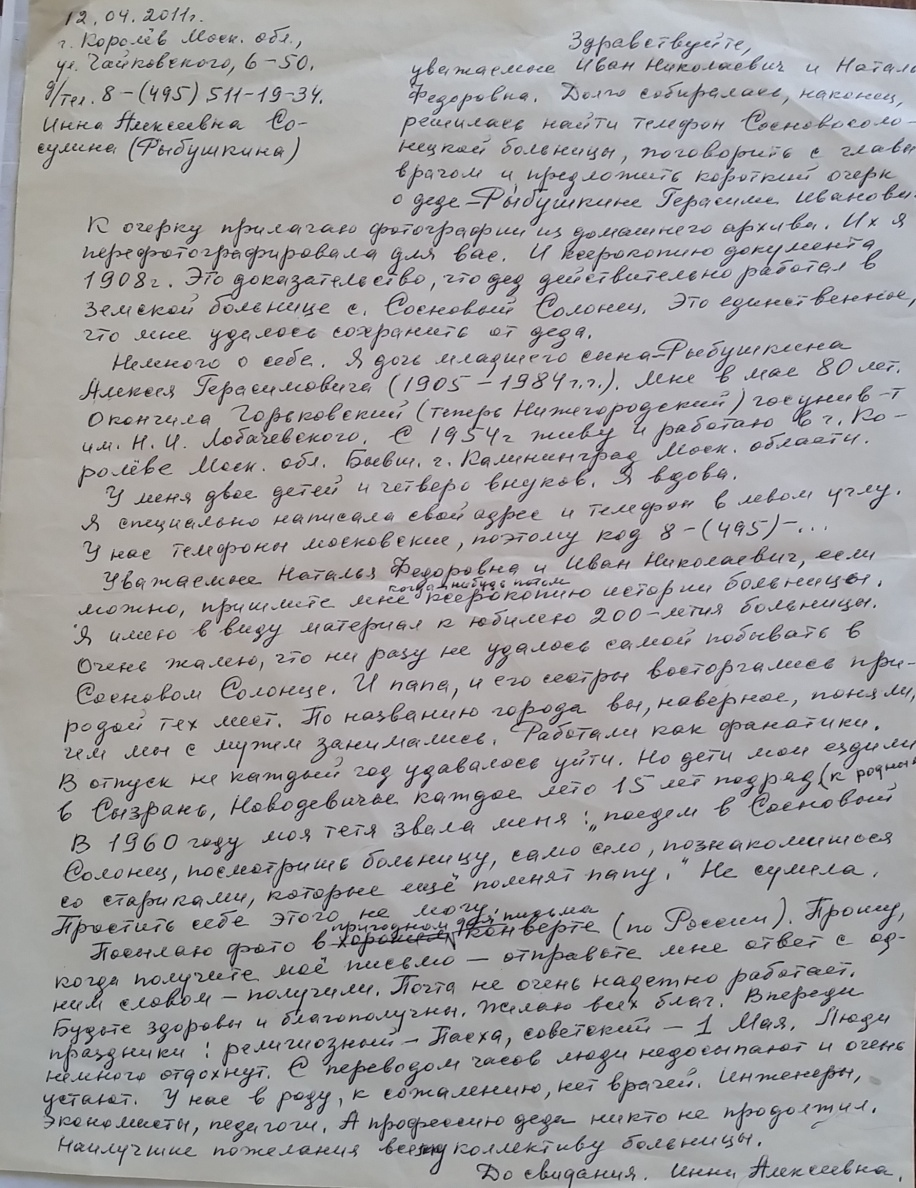 12.04.2011г.
г. Королёв Моск. обл.,
ул. Чайковского, 6-50.
д/тел. 8-(495) 511-19-34.
Инна Алексеевна Со-
сулина (Рыбушкина)
Здравствуйте,
уважаемые Иван Николаевич и Наталь
Федоровна. Долго собиралась, наконец,
решилась найти телефон Сосновосоло-
нецкой больницы, поговорить с главн
врачом и предложить короткий очерк
о деде-Рыбушкине Герасиме Иванови
К очерку прилагаю фотографии из домашнего архива. Их я
перефотографировала для вас. И ксерокопию документа
1908г. Это доказательство, что дед действительно работал в
земской больнице с. Сосновый Солонец. Это единственное,
что мне удалось сохранить от деда.
Немного о себе. Я дочь младшего сына-Рыбушкина
Алексея Герасимовича (1905-1984г.г.). Мне в мае 80 лет.
Окончила Горьковский (теперь Нижегородский) госунив-т
им. Н.И. Лобачевского. С 1954г живу и работаю в г. Ко-
ролёве Моск. обл. Бывш. г. Калининград Моск. области.
У меня двое детей и четверо внуков. Я вдова.
Я специально написала свой адрес и телефон в левом углу.
У нас телефоны московские, поэтому код 8-(495)-...
Уважаемые Наталья Федоровна и Иван Николаевич, если
можно, пришлите мне когда-нибудь потом ксерокопию истории больницы.
Я имею в виду материал к юбилею 200-летия больницы.
Очень жалею, что ни разу не удалось самой побывать в
Сосновом Солонце. И папа, и его сестры восторгались при-
родой тех мест. По названию города вы, наверное, поняли,
чем мы с мужем занимались. Работали как фанатики.
В отпуск не каждый год удавалось уйти. Но дети мои ездили
в Сызрань, Новодевичье каждое лето 15 лет подряд (к родным
В 1960 году моя тетя звала меня: „поедем в Сосновый
Солонец, посмотришь больницу, само село, познакомишься
со стариками, которые ещё помнят папу." Не сумела.
Простить себе этого не могу.
Посылаю фото в хорошем пригодном для письма конверте (по России). Прошу,
когда получите моё письмо — отправьте мне ответ с од-
ним словом — получили. Почта не очень надежно работает.
Будьте здоровы и благополучны. Желаю всех благ. Впереди
праздники: религиозный — Пасха, советский — 1 Мая. Люди
немного отдохнут. С переводом часов люди недосыпают и очень
устают. У нас в роду, к сожалению, нет врачей. Инженеры,
экономисты, педагоги. А профессию деда никто не продолжил.
Наилучшие пожелания всему коллективу больницы.
До свидания. Инна Алексеевна.